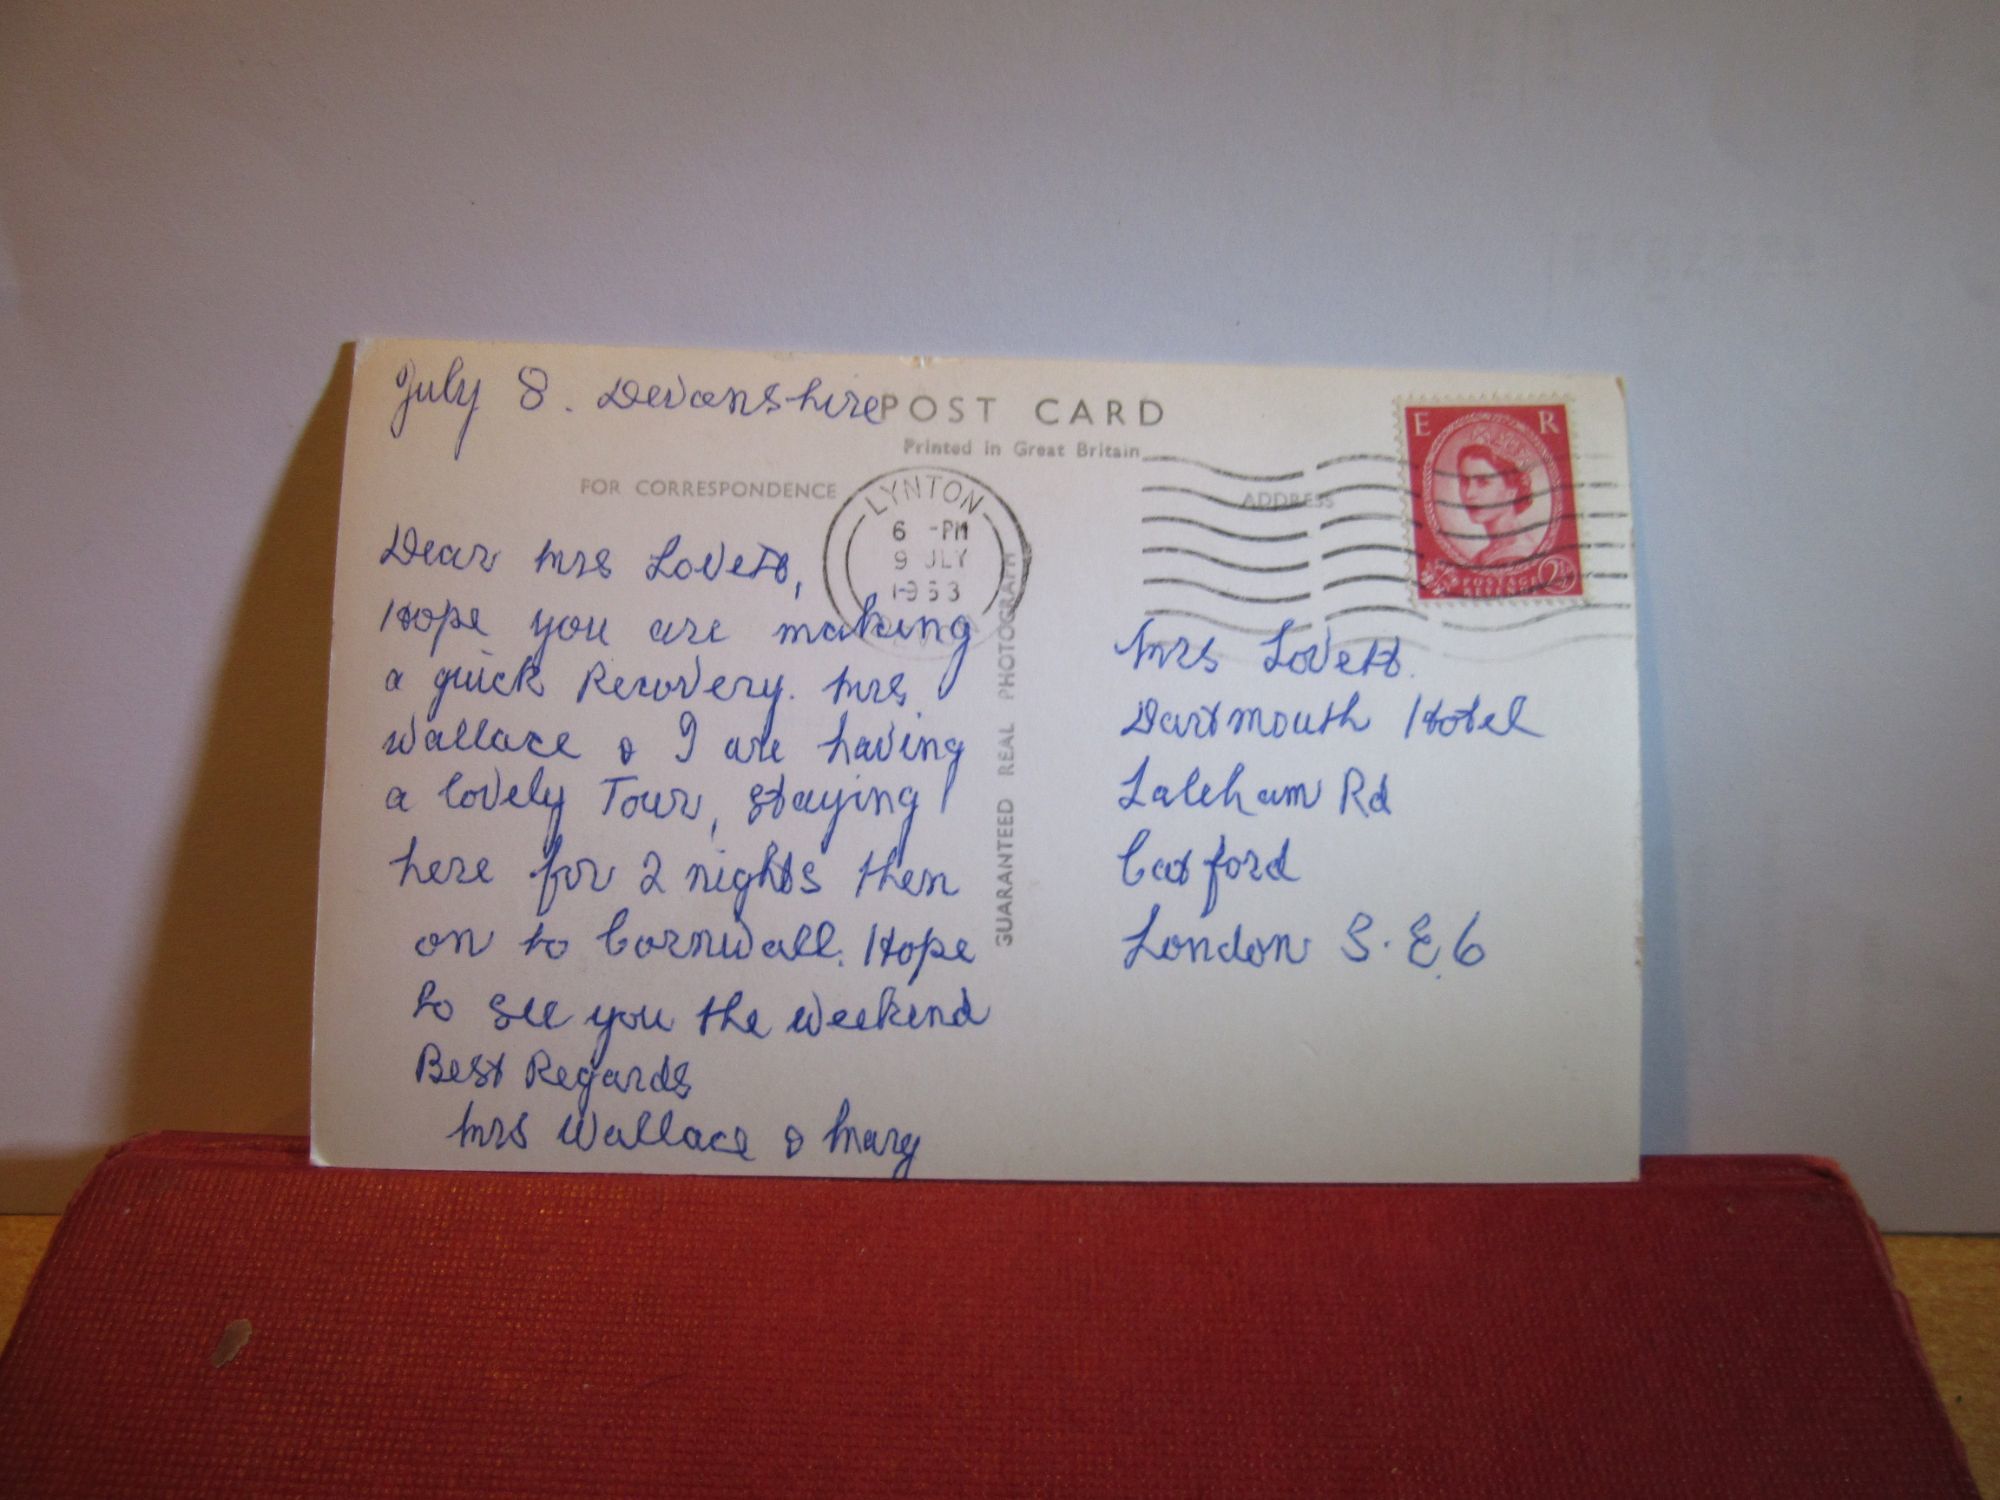 July 8. Devonshire
POST CARD
Printed in Great Britain
FOR CORRESPONDENCE
ADDRESS
LYNTON
6 -PM
9 JLY
E R
POSTAGE
REVENUE
2½
Dear Mrs Lovett,
Hope you are making
a quick Recovery. Mrs
Wallace & I are having
a lovely Tour, staying
here for 2 nights then
on to Cornwall. Hope
to see you the weekend
Best Regards
Mrs Wallace & Mary
GUARANTEED REAL PHOTOGRAPH
Mrs Lovett.
Dartmouth Hotel
Laleham Rd
Catford
London S.E.6